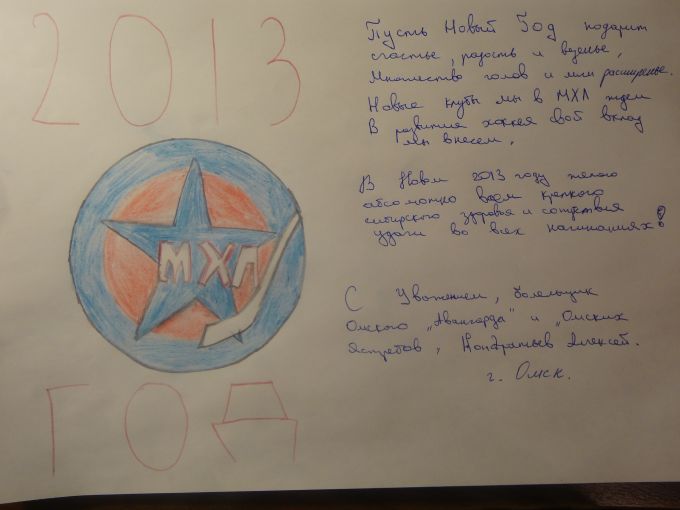 2013
МХЛ
ГОД
Пусть Новый Год подарит
счастье, радость и везенье,
Множество голов и лиги расширенье.
Новые клубы мы в МХЛ ждем
В развитие хоккея свой вклад
мы внесем.
В Новом 2013 году желаю
абсолютно всем крепкого
сибирского здоровья и сопутствия
удачи во всех начинаниях!
С Уважением, болельщик
Омского „Авангарда" и „Омских
Ястребов, Кондратьев Алексей.
г. Омск.